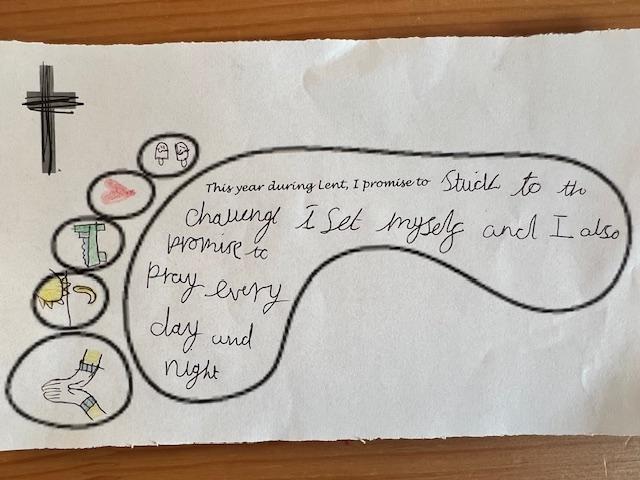 This year during Lent, I promise to Stick to th
challenge I Set myself and I also
promise to
pray every
day and
night